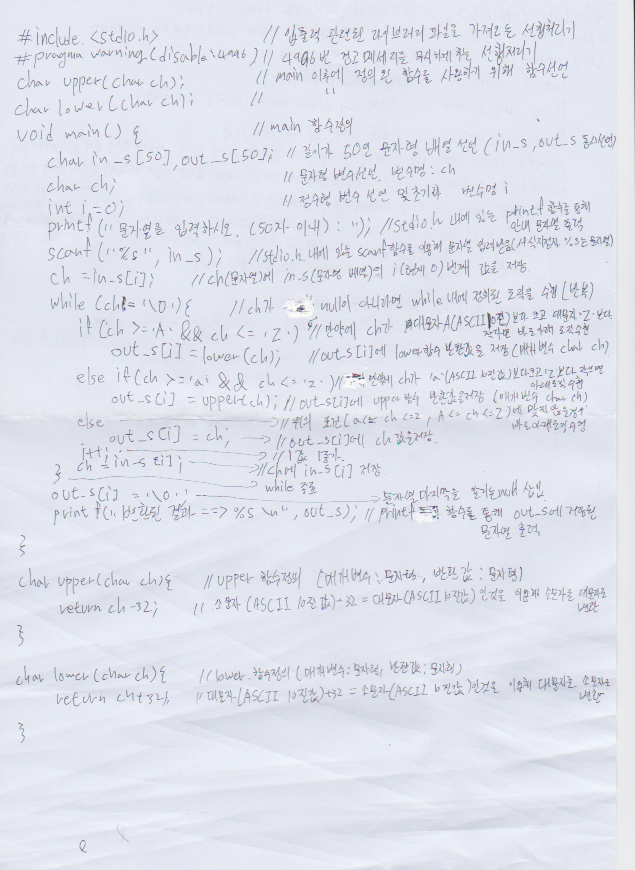 #include <stdio.h> // 입출력 관련된 라이브러리 파일을 가져오는 선행처리기
#pragma warning(disable:4996) // 4996번 경고메세지를 무시하게 하는 선행처리기
char upper(char ch); // main 이후에 정의된 함수를 사용하기 위해 함수선언
char lower(char ch); // "
void main() { // main 함수정의
char in_s[50], out_s[50]; // 길이가 50인 문자형 배열 선언 (in_s, out_s 동시선언)
char ch; // 문자형 변수선언. 변수명: ch
int i=0; // 정수형 변수 선언 및 초기화 변수명 i
printf("문자열을 입력하시오. (50자 이내) : "); // stdio.h 내에 있는 printf 함수를 통해 안내 문자열 출력
scanf("%s", in_s); // stdio.h. 내에 있는 scanf 함수를 이용해 문자열 입력받음 (서식지정자 %s는 문자열)
ch = in_s[i]; // ch(문자열)에 in_s(문자형 배열)의 i(현재 0)번째 값을 저장.
while (ch != '\0'){ // ch가 null이 아니라면 while 내에 정의된 로직을 수행 [반복]
if (ch >= 'A' && ch <= 'Z') // 만약에 ch가 대문자A(ASCII 10진)보다 크고 대문자 'Z' 보다 작으면 바로아래 로직수행
out_s[i] = lower(ch); // out_s[i]에 lower함수 반환값을 저장 (매개변수 char ch)
else if(ch >= 'a' && ch <= 'z') // 만약에 ch가 'a'(ASCII 10진값)보다 크고 'z'보다 작으면 아래로직수행
out_s[i] = upper(ch); // out_s[i]에 upper함수 반환값을 저장 (매개변수 char ch)
else // 위의 조건(a<= ch <=z, A <= ch <=Z)에 맞지 않을경우 바로아래로직수행
out_s[i] = ch; // out_s[i]에 ch 값을저장.
i++; // i값 1증가.
ch = in_s[i]; // ch에 in_s[i] 저장.
} while 종료
out_s[i] = '\0'; 문자열 마지막을 알리는 null 삽입.
printf("변환된 결과 ==> %s \n", out_s); // printf 함수를 통해 out_s에 저장된 문자열 출력
}
char upper(char ch){ // upper 함수정의 (매개변수: 문자형, 반환값: 문자형)
return ch-32; // 소문자(ASCII 10진값)-32 = 대문자(ASCII 10진값)인것을 이용해 소문자를 대문자로 변환
}
char lower(char ch){ // lower. 함수정의 (매개변수: 문자형, 반환값: 문자형)
return ch+32; // 대문자(ASCII 10진값)+32 = 소문자(ASCII 10진값)인것을 이용해 대문자를 소문자로 변환
}